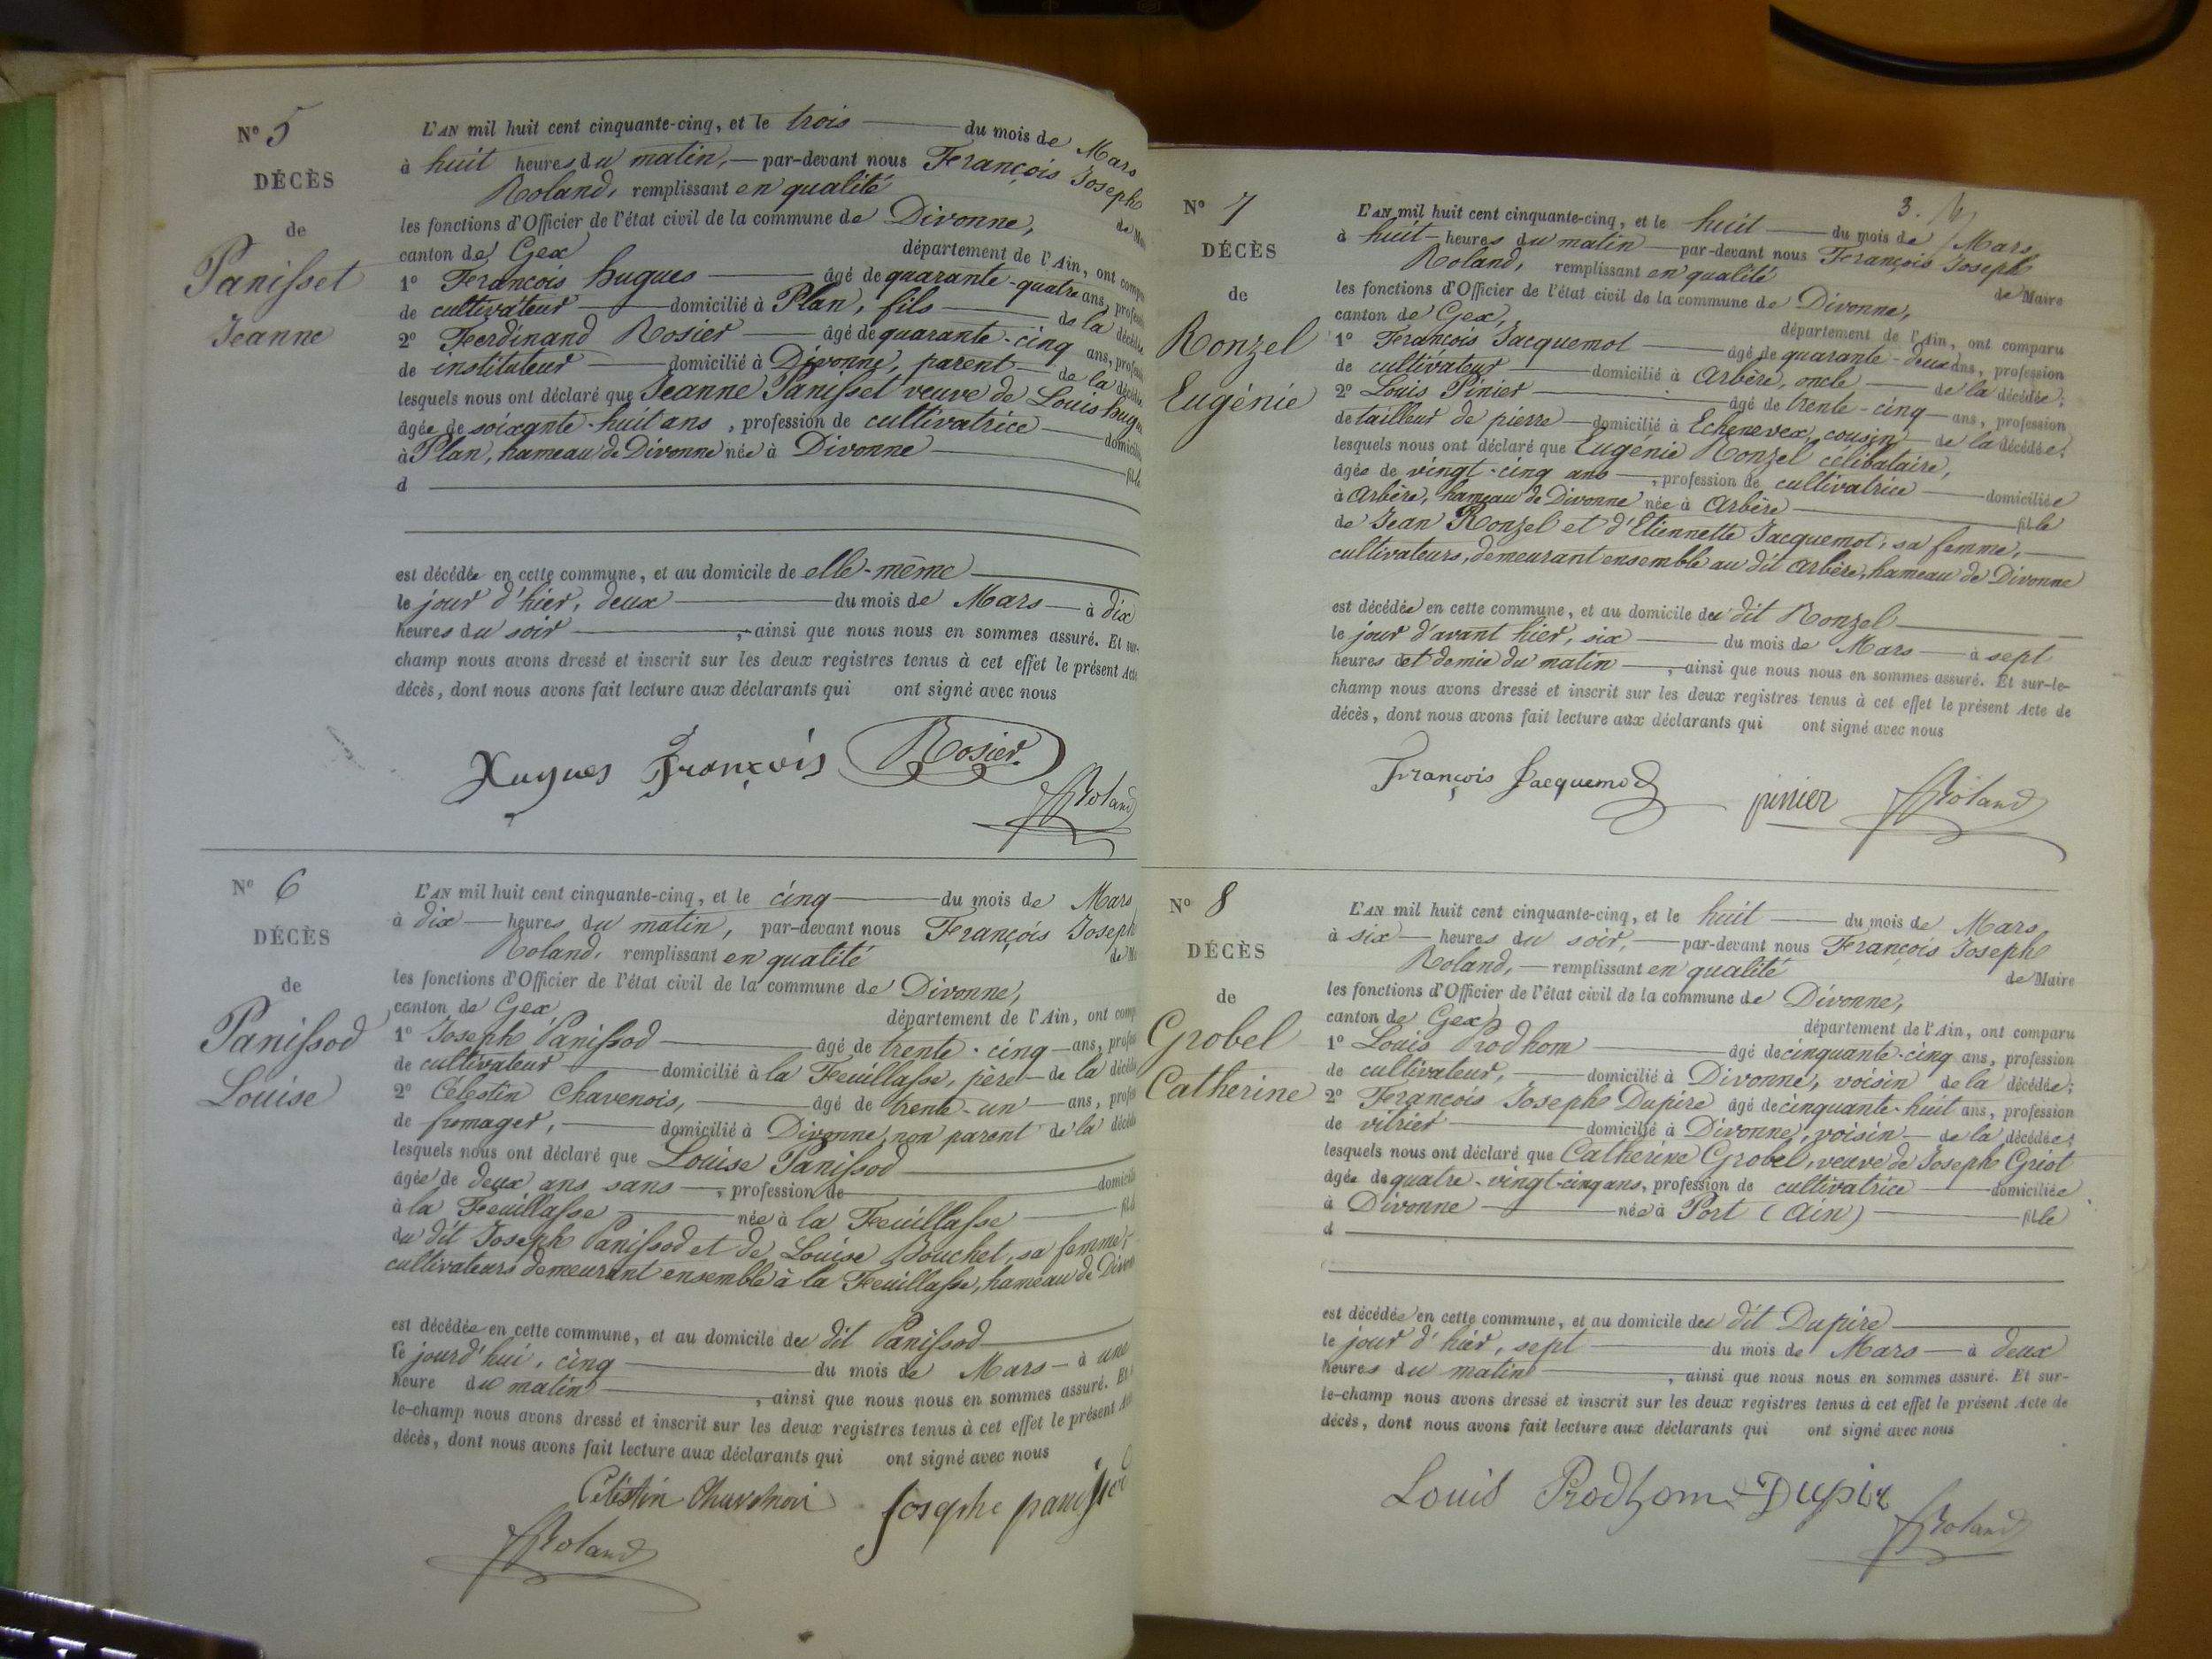 N° 5
DÉCÈS
de
Panisset
Jeanne
L'AN mil huit cent cinquante-cinq, et le trois du mois de Mars
à huit heures du matin, par-devant nous François Joseph
Roland, remplissant en qualité de M
les fonctions d'Officier de l'état civil de la commune de Divonne,
canton de Gex département de l'Ain, ont comp
1° François hugues âgé de quarante-quatre ans, profess
de cultivateur domicilié à Plan, fils de la décédée
2° Ferdinand Rosier âgé de quarante-cinq ans, profess
de instituteur domicilié à Divonne, parent de la décédée
lesquels nous ont déclaré que Jeanne Panisset veuve de Louis hugu
âgée de soixante-huit ans, profession de cultivatrice domicili
à Plan, hameau de Divonne née à Divonne fille
d
est décédée en cette commune, et au domicile de elle-même
le jour d'hier, deux du mois de Mars à dix
heures du soir, ainsi que nous nous en sommes assuré. Et sur-
champ nous avons dressé et inscrit sur les deux registres tenus à cet effet le présent Acte
décès, dont nous avons fait lecture aux déclarants qui ont signé avec nous
Hugues François Rosier
Roland
N° 6
DÉCÈS
de
Panissod
Louise
L'AN mil huit cent cinquante-cinq, et le cinq du mois de Mars
à dix heures du matin, par-devant nous François Joseph
Roland, remplissant en qualité de M
les fonctions d'Officier de l'état civil de la commune de Divonne,
canton de Gex département de l'Ain, ont comp
1° Joseph Panissod âgé de trente-cinq ans, profes
de cultivateur domicilié à la Feuillasse, père de la décéd
2° Célestin Chavenois, âgé de trente-un ans, profes
de fromager, domicilié à Divonne, non parent de la décéd
lesquels nous ont déclaré que Louise Panissod
âgée de deux ans sans, profession de domicili
à la Feuillasse née à la Feuillasse fil
du dit Joseph Panissod et de Louise Bouchet, sa femme,
cultivateurs demeurant ensemble à la Feuillasse, hameau de Divon
est décédée en cette commune, et au domicile du dit Panissod
le jourd'hui, cinq du mois de Mars à une
heure du matin, ainsi que nous nous en sommes assuré. Et
le-champ nous avons dressé et inscrit sur les deux registres tenus à cet effet le présent Ac
décès, dont nous avons fait lecture aux déclarants qui ont signé avec nous
Célestin Chavenoi Josephe panissod
Roland
3.
N° 7
DÉCÈS
de
Ronzel
Eugénie
L'AN mil huit cent cinquante-cinq, et le huit du mois de Mars
à huit heures du matin par-devant nous François Joseph
Roland, remplissant en qualité de Maire
les fonctions d'Officier de l'état civil de la commune de Divonne,
canton de Gex, département de l'Ain, ont comparu
1° François Jacquemot âgé de quarante-deux ans, profession
de cultivateur domicilié à Arbère, oncle de la décédée;
2° Louis Pinier âgé de trente-cinq ans, profession
de tailleur de pierre domicilié à Echenevex, cousin de la décédée;
lesquels nous ont déclaré que Eugénie Ronzel célibataire,
âgée de vingt-cinq ans, profession de cultivatrice domiciliée
à Arbère, hameau de Divonne née à Arbère fille
de Jean Ronzel et d'Etiennette Jacquemot, sa femme,
cultivateurs, demeurant ensemble au dit Arbère, hameau de Divonne
est décédée en cette commune, et au domicile du dit Ronzel
le jour d'avant hier, six du mois de Mars à sept
heures et demie du matin, ainsi que nous nous en sommes assuré. Et sur-le-
champ nous avons dressé et inscrit sur les deux registres tenus à cet effet le présent Acte de
décès, dont nous avons fait lecture aux déclarants qui ont signé avec nous
François Jacquemod pinier Roland
N° 8
DÉCÈS
de
Grobel
Catherine
L'AN mil huit cent cinquante-cinq, et le huit du mois de Mars
à six heures du soir, par-devant nous François Joseph
Roland, remplissant en qualité de Maire
les fonctions d'Officier de l'état civil de la commune de Divonne,
canton de Gex département de l'Ain, ont comparu
1° Louis Prodhom âgé de cinquante-cinq ans, profession
de cultivateur, domicilié à Divonne, voisin de la décédée;
2° François Joseph Dupire âgé de cinquante-huit ans, profession
de vitrier domicilié à Divonne, voisin de la décédée;
lesquels nous ont déclaré que Catherine Grobel, veuve de Joseph Griot
âgée de quatre-vingt-cinq ans, profession de cultivatrice domiciliée
à Divonne née à Port (Ain) fille
d
est décédée en cette commune, et au domicile du dit Dupire
le jour d'hier, sept du mois de Mars à deux
heures du matin, ainsi que nous nous en sommes assuré. Et sur-
le-champ nous avons dressé et inscrit sur les deux registres tenus à cet effet le présent Acte de
décès, dont nous avons fait lecture aux déclarants qui ont signé avec nous
Louis Prodhom Dupire
Roland